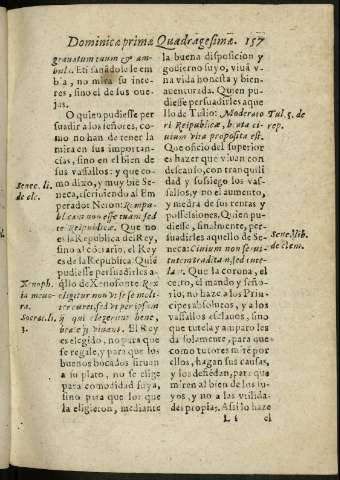 Dominicæ primæ Quadragesimæ. 157
grauatum tuum & am-
bula. Et sanãdole le em
bia, no mira su inte
res, sino el de sus oue
jas.
O quien pudiesse per
suadir a los señores, como
no han de tener la
mira en sus importan-
cias, sino en el bien de
sus vassallos: y que como
dixo, y muy biẽ Se-
neca, escriuiendo al Em
perador Neron:
non esse tuam sed
te Reipublicæ. Que no
es la Republica del Rey,
sino al cõtrario, el Rey
es de la Republica. Quiẽ
pudiesse persuadirles a-
q̃llo de Xenofonte Rex
eligitur non vt se
sed vt per ipsum
ij qui elegerunt bene
El Rey
es elegido, no para que
se regale, y para que los
buenos bocados siruan
a su plato, no se elige
para comodidad suya,
sino para los que
la eligieron, mediante
Senec. li.
de cle.
Xenoph.
Socrat. li.
3.
la buena disposicion y
gouierno suyo, viuã v-
na vida honesta y bien-
auenturada. Quien pu-
diesse persuadirles aque
llo de Tulio: Moderato
ri Reipublicæ, beata ci-
uium vita proposita est.
Que oficio del superior
es hazer que viuan con
descanso, con tranquili
dad y sosiego los vas-
sallos, y no el aumento,
y medra de sus rentas y
possessiones. Quien pu-
diesse, finalmente, per-
suadirles aquello de Se-
neca: Ciuium non
Que la corona, el
cetro, el mando y seño-
rio, no haze a los Prin-
cipes absolutos, y a los
vassallos esclauos, sino
que tutela y amparo les
da solamente, para que
como tutores mirẽ por
ellos, hagan sus causas,
y los defiendan, para que
miren al bien de los su-
yos, y no a las vtilida-
des propias. Assi lo haze
Tul. 5. de
rep.
Sene. lib.
de clem.
el